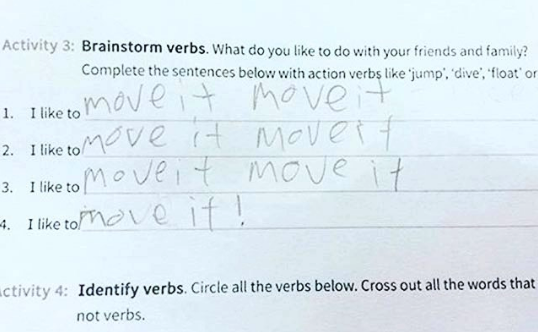 Activity 3: Brainstorm verbs. What do you like to do with your friends and family?
Complete the sentences below with action verbs like 'jump', 'dive', 'float' or
1. I like to move it move it
2. I like to move it move it
3. I like to move it move it
4. I like to move it!
ctivity 4: Identify verbs. Circle all the verbs below. Cross out all the words that
not verbs.